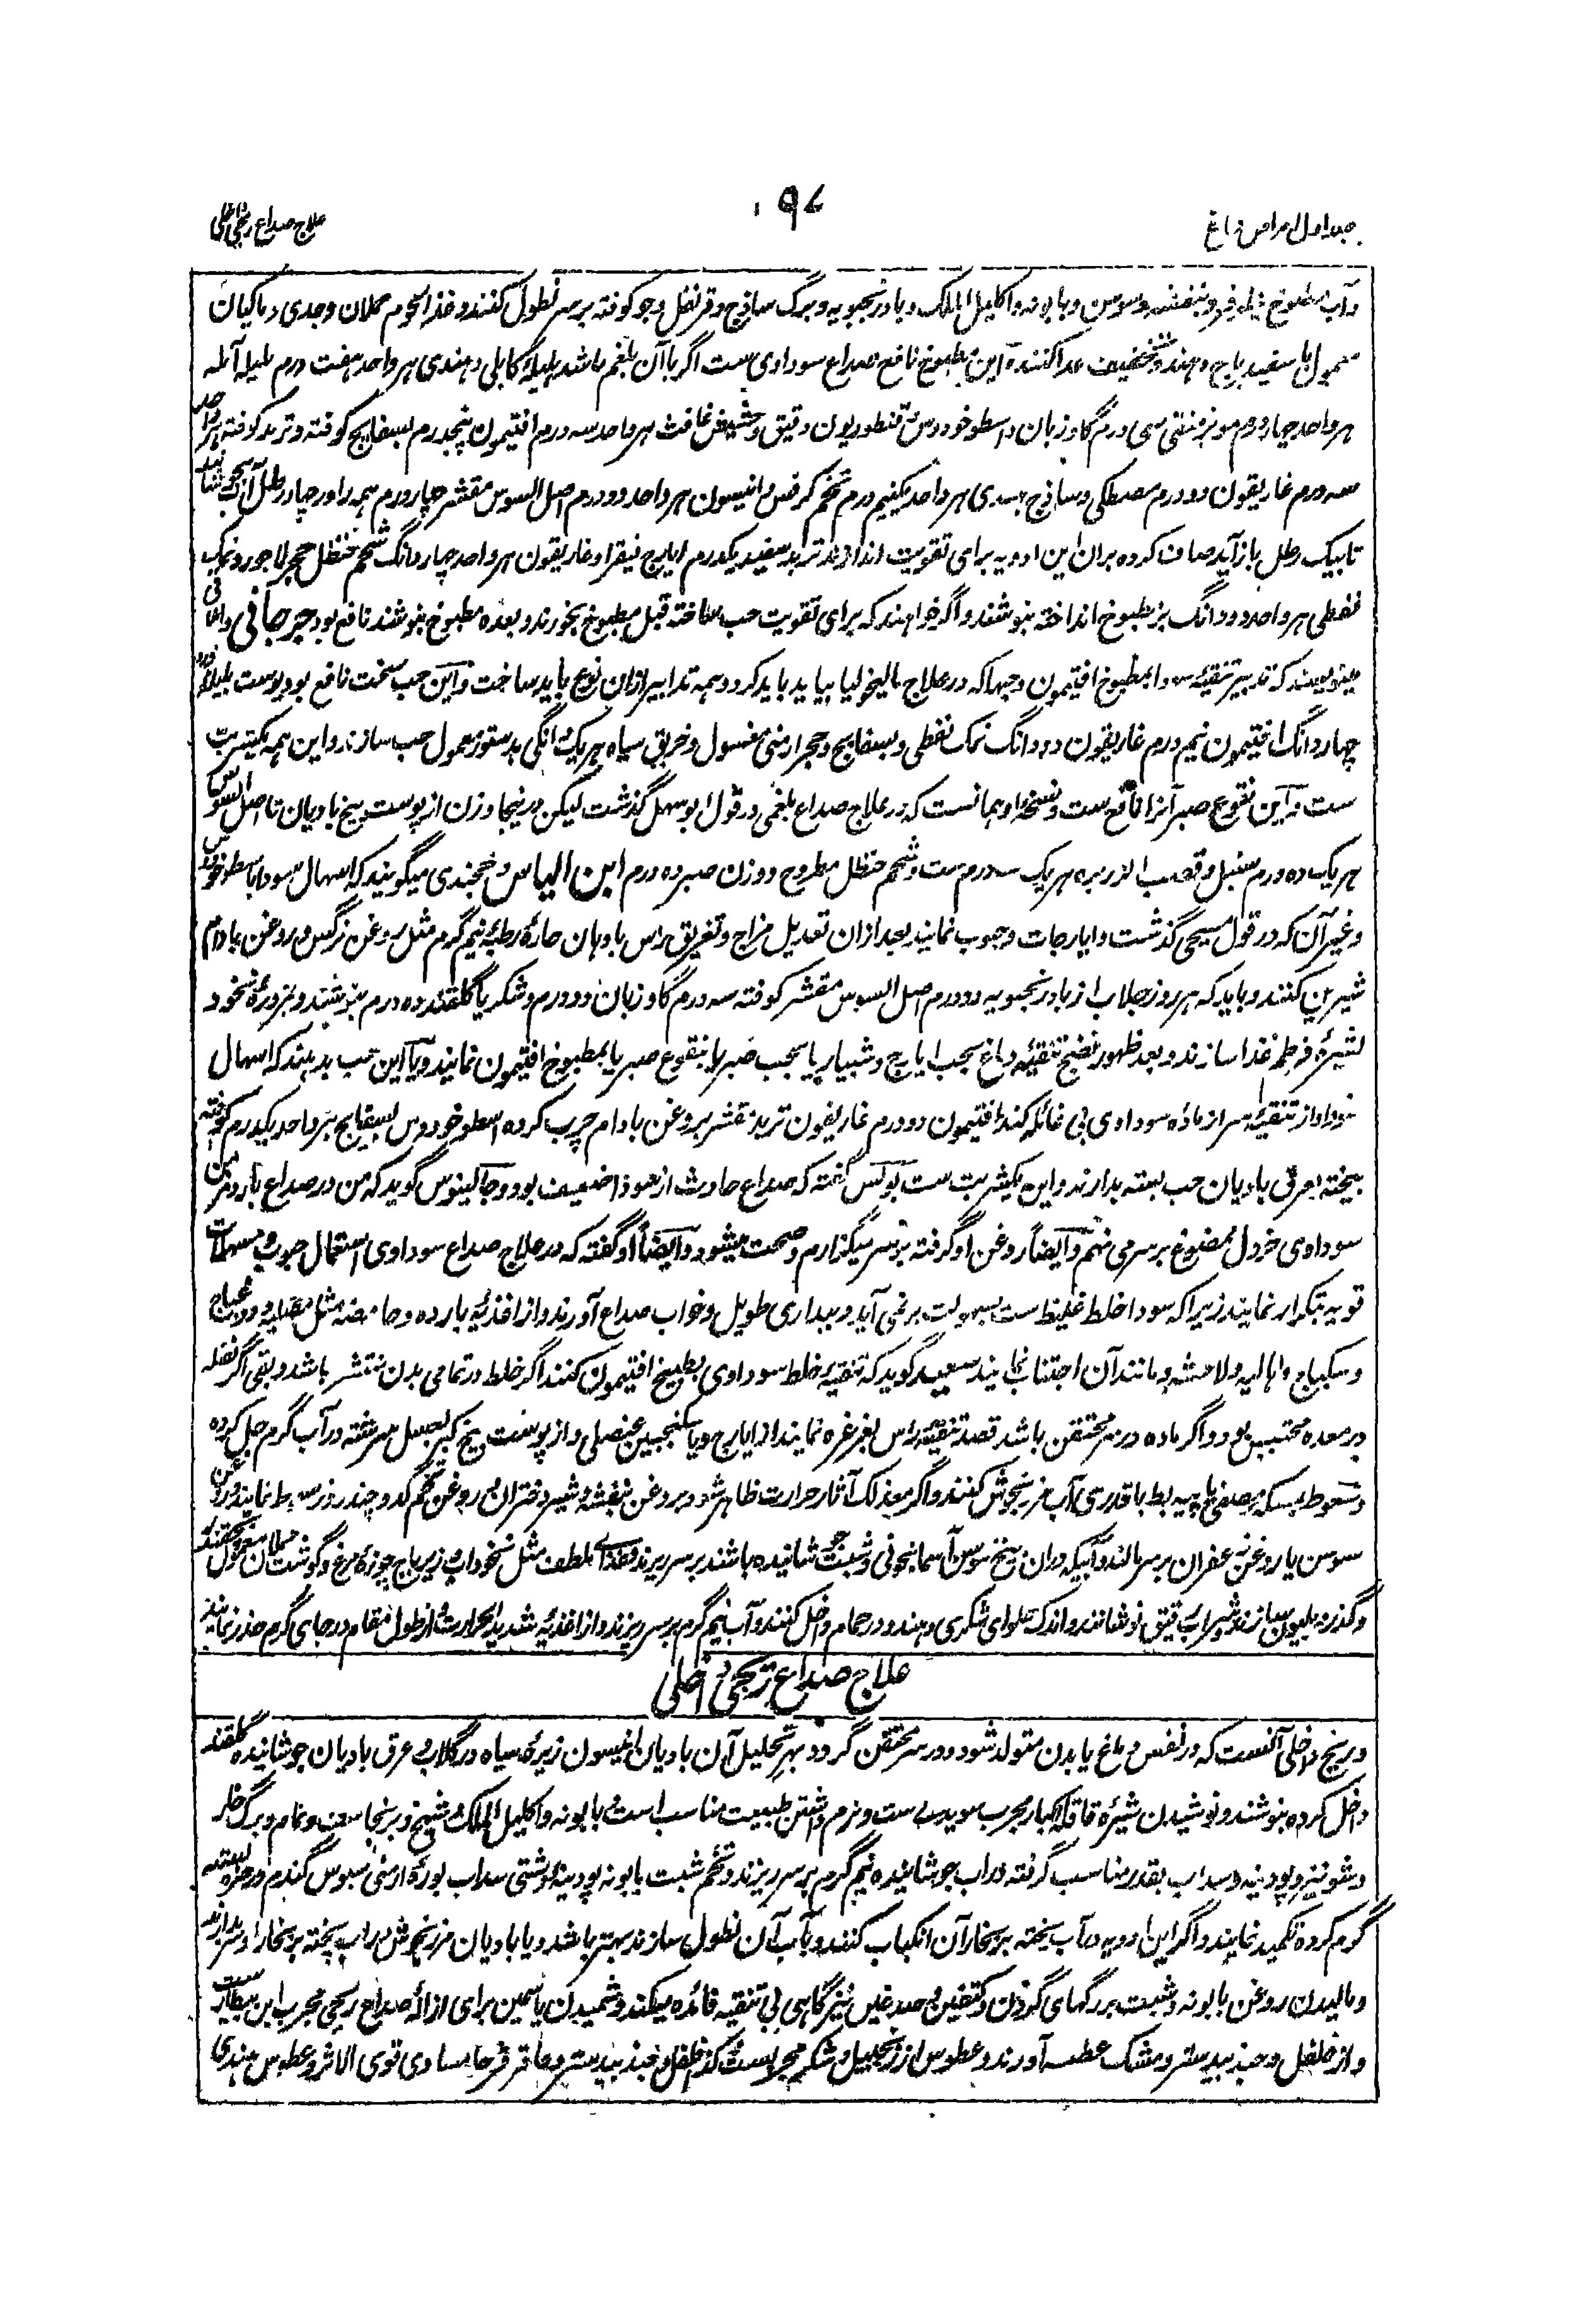 علاج صداع ریحی داخلی
جلد اول امراض دماغ
وآب مطبوخ نیلوفر و بنفشه و سوسن و بابونه و اکلیل الملک و بادرنجبویه و برگ ساذج و قرنفل و جو کوفته بر سر نطول کنند و غذا لحوم حملان و جدی و ماکیان
معمول با سفیدباج دهند و تخفیف غذا کنند و این مطبوخ نافع صداع سوداوی ست اگر با آن بلغم باشد هلیله کابلی و هندی هر واحد هفت درم بلیله آمله
هر واحد چهار درم مویز منقی سی درم گاوزبان و اسطوخودوس و قنطوریون دقیق و حشیش غافث هر واحد سه درم افتیمون پنجدرم بسفایج کوفته و تربد کوفته هر واحد
سه درم غاریقون دو درم مصطکی و ساذج هندی هر واحد یکنیم درم تخم کرفس و انیسون هر واحد دو درم اصل السوس مقشر چهار درم همه را در چهار رطل آب بجوشانند
تا بیک رطل باز آید صاف کرده بران این ادویه برای تقویت اندازند تربد سفید یکدرم ایارج فیقرا و غاریقون هر واحد چهار دانگ شحم حنظل حجر لاجورد نمک
نفطی هر واحد دو دانگ بر مطبوخ انداخته بنوشند و اگر خواهند که برای تقویت حب ساخته قبل مطبوخ بخورند و بعده مطبوخ بنوشند نافع بود جرجانی و ایلاقی
مینویسند که تدبیر تنقیه سودا بمطبوخ افتیمون و حبها که در علاج مالیخولیا بیاید باید کرد و همه تدابیر ازان نوع باید ساخت و این حب سخت نافع بود پوست هلیله زرد
چهار دانگ افتیمون نیم درم غاریقون دو دانگ نمک نفطی و بسفایج و حجر ارمنی مغسول و خربق سیاه هر یک دانگی بدستور معمول حب سازند و این همه یکشربت
ست و این نقوع صبر آنرا نافع ست و نسخه او همانست که در علاج صداع بلغمی در قول ابو سهل گذشت لیکن درینجا وزن از پوست بیخ بادیان تا اصل السوس
هر یک ده درم سنبل و قصب الذریره هر یک سه درم ست و شحم حنظل مطروح و وزن صبر ده درم ابن الیاس و خجندی میگویند که اسهال سودا باسطوخودوس
و غیر آن که در قول مسیحی گذشت و ایارجات و حبوب نمایند بعد ازان تعدیل مزاج و تغریق راس بادهان حاره رطبه نیم گرم مثل روغن نرگس و روغن بادام
شیرین کنند و باید که هر روز جلاب از بادرنجبویه دو درم اصل السوس مقشر کوفته سه درم گاوزبان دو درم و شکر یا گلقند ده درم بنوشند و مزوره نخود
بشیره قرطم غذا سازند و بعد ظهور نضج تنقیه دماغ بحب ایارج و شبیار یا بحب صبر یا بنقوع صبر یا بمطبوخ افتیمون نمایند و یا این حب بدهند که اسهال
سودا و از تنقیه سر از ماده سوداوی بی غائله کند افتیمون دو درم غاریقون تربد مقشر بروغن بادام چرب کرده اسطوخودوس بسفایج هر واحد یکدرم کوفته
بیخته بعرق بادیان حب بسته بدارند و این یکشربت ست بولس گفته که صداع حادث از سودا ضعیف بود و جالینوس گوید که من در صداع بارد مزمن
سوداوی خردل مصنوع بر سر می نهم و ایضاً روغن او گرفته بر سر میگذارم و صحت میشود و ایضاً او گفته که در علاج صداع سوداوی استعمال حبوب و مسهلات
قویه بتکرار نمایند زیرا که سودا خلط غلیظ ست بسهولت برنمی آید و بیداری طویل و خواب صداع آورند و از اغذیه بارده و حامضه مثل
و سکباج و اهالیه و لاخشه و مانند آن اجتناب نمایند سعید گوید که تنقیه خلط سوداوی بطبیخ افتیمون کنند اگر خلط در تمامی بدن منتشر باشد و بقی اگر فضله
در معده محتبس بود و اگر ماده در سر محتقن باشد قصد تنقیه راس بغرغره نمایند از ایارج و یا سکنجبین عنصلی و از پوست بیخ کبر بعسل سرشته در آب گرم حل کرده
و سعوط بمسکه مصفی یا پیه بط با قدری آب مرزنجوش کنند و اگر معذلک آثار حرارت ظاهر شود بروغن بنفشه و شیر دختران و روغن تخم کدو چند روز سعوط نمایند و روغن
سوسن یا روغن زعفران بر سر مالند و آبیکه دران بیخ سوسن آسمانجونی و شبت جوشانیده باشند بر سر ریزند و غذای لطیف مثل نخوداب و زیرباج چوزه مرغ و گوشت حملان معمول بجقندر
و گذر و هلیون سازند و شراب رقیق نوشانند و اندک حلوای شکری دهند و در حمام داخل کنند و آب نیم گرم بر سر ریزند و از اغذیه شدید الحرارت و از طول مقام در جای گرم حذر نمایند
علاج صداع ریحی داخلی
و ریح داخلی آنست که در نفس دماغ یا بدن متولد شود و در سر محتقن گردد بهر تحلیل آن بادیان انیسون زیره سیاه در گلاب و عرق بادیان جوشانیده گلقند
داخل کرده بنوشند و نوشیدن شیره قاقله کبار مجرب سویدی ست و نرم داشتن طبیعت مناسب است و بابونه و اکلیل الملک و شیح و برنجاسف و نمام و برگ غار
و شونیز و پودینه و سداب بقدر مناسب گرفته در آب جوشانیده نیم گرم بر سر ریزند و تخم شبت بابونه پودینه دشتی سداب بوره ارمنی سبوس گندم در خرقه بسته
گرم کرده تکمید نمایند و اگر این ادویه در آب پخته بر بخار آن انکباب کنند و بآب آن نطول سازند بهتر باشد و یا بادیان مرزنجوش در آب پخته بر بخار او سر دارند
و مالیدن روغن بابونه و شبت بر رگهای گردن و کتفین و صدغین نیز گاهی بی تنقیه فائده میکند و شمیدن یاسمین برای ازاله صداع ریحی مجرب ابن بیطار ست
و از فلفل و جندبیدستر و مشک عطسه آورند و عطوس از زنجبیل و شکر مجرب ست و کذا فلفل و جندبیدستر و عاقرقرحا مساوی قوی الاثر و عطوس هندی